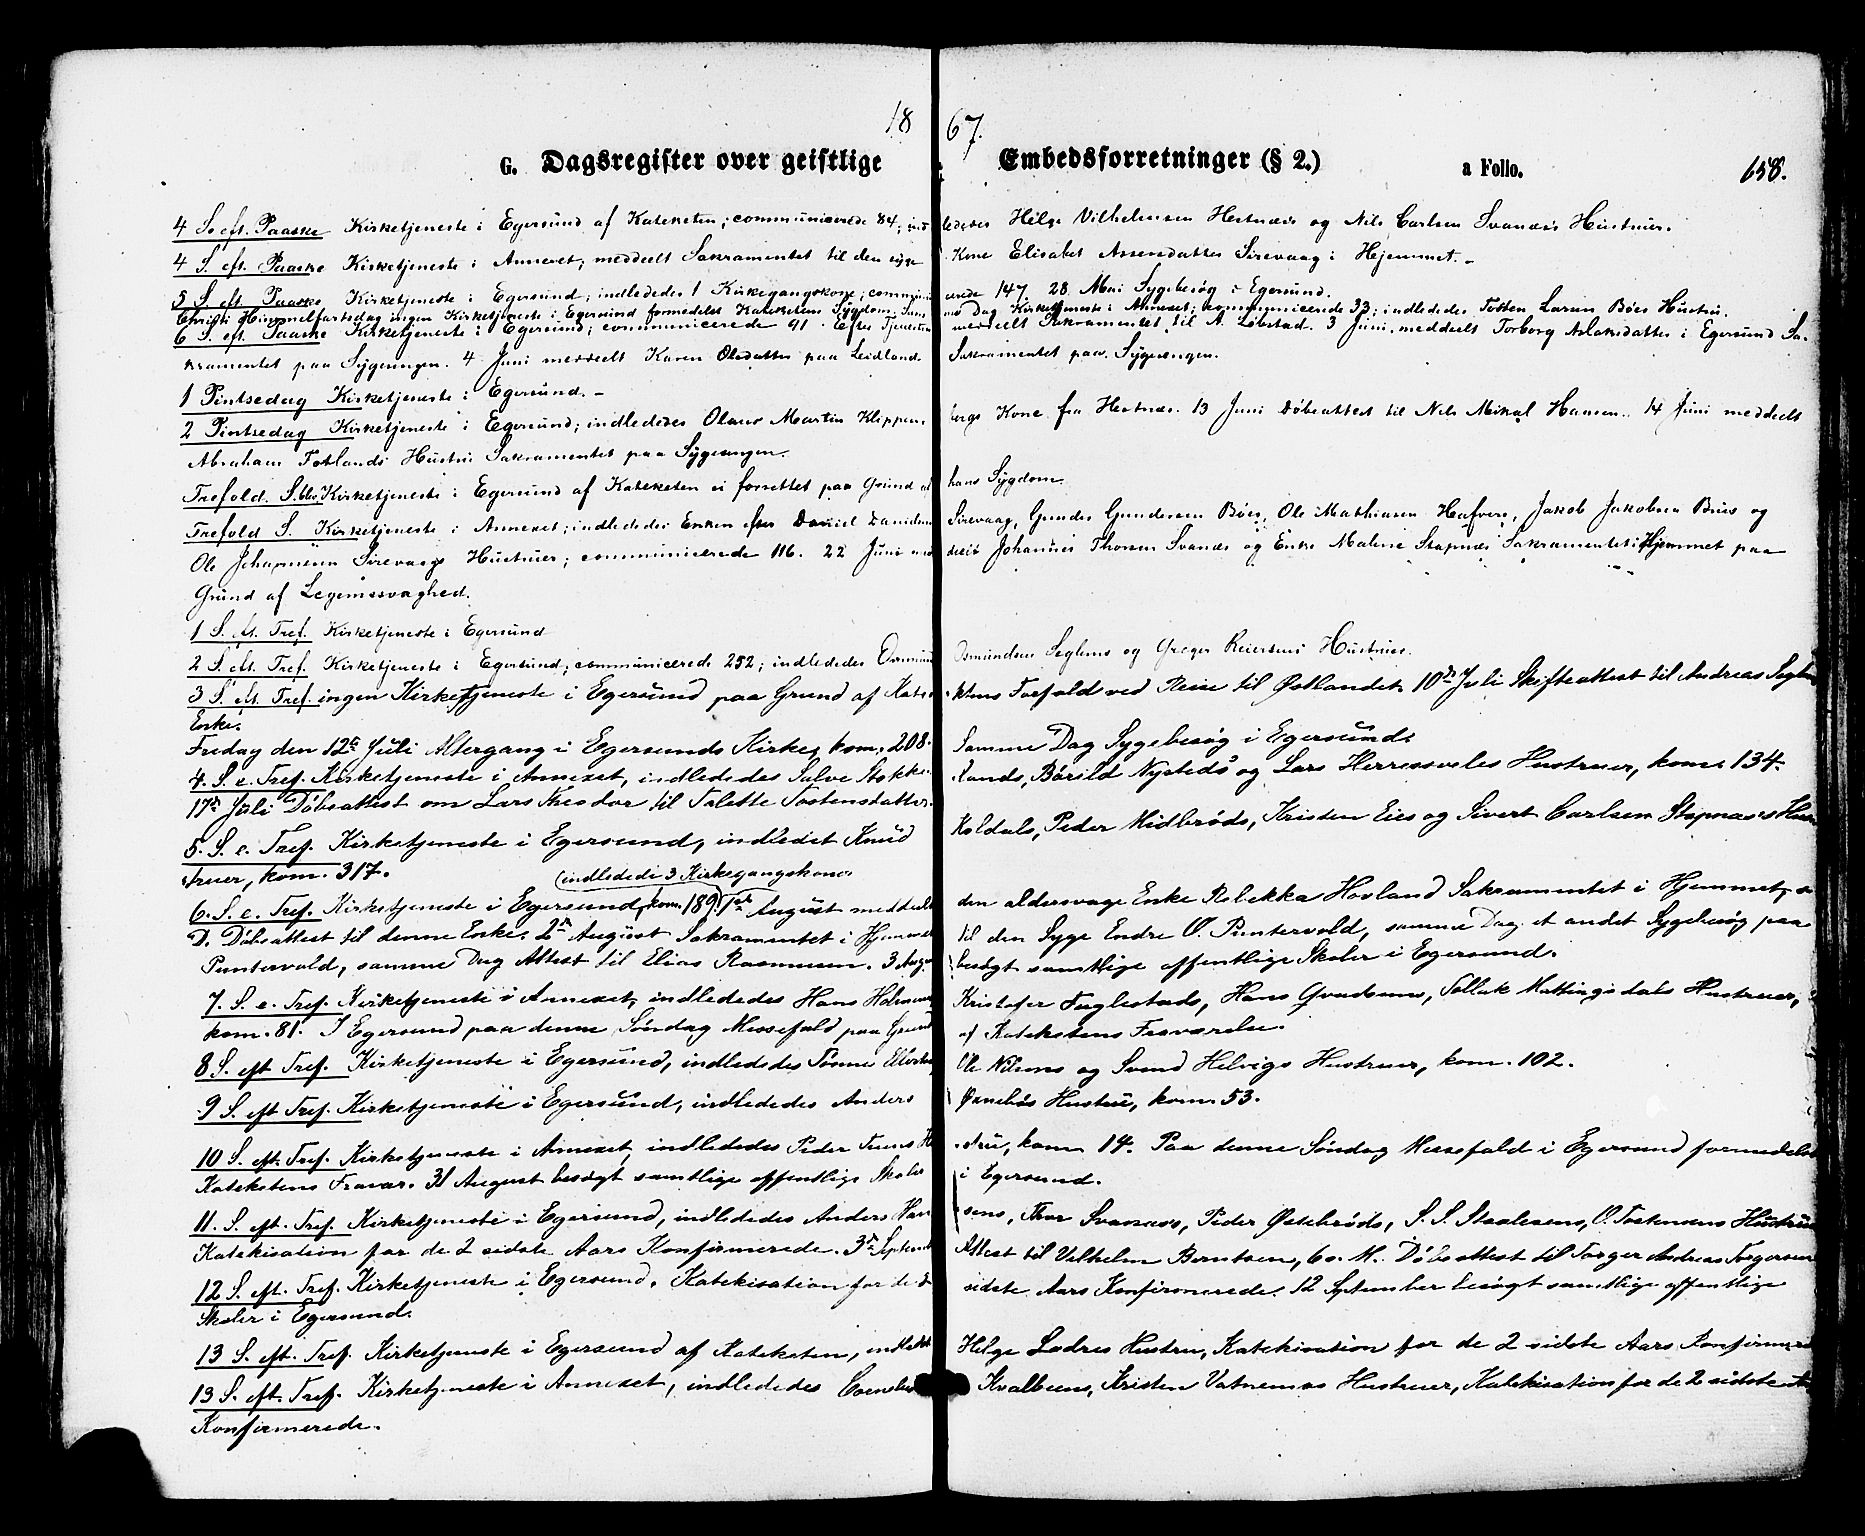 18 67.
G. Dagsregister over geistlige Embedsforretninger (§ 2.) a Folio. 658.
4 S. eft. Paaske Kirketjeneste i Egersund af Kateketen; communicerede 84; indledes Helge Vilhelmsen Hestnæs og Nils Carlsen Svanæs Hustruer.
4 S. eft. Paaske Kirketjeneste i Annexet; meddeelt Sakramentet til den syge Kone Elisabet Assersdatter Sirevaag i Hjemmet.-
5 S. eft. Paaske Kirketjeneste i Egersund; indlededes 1 Kirkegangskone; communicerede 147. 28. Mai Sygebesøg i Egersund.
Christi Himmelfartsdag ingen Kirketjeneste i Egersund formedelst Katekетens Sygdom. Samme Dag Kirketjeneste i Annexet; kommunicerede 33; indlededes Tosten Larsen Bøes Hustru.
6 S. eft. Paaske Kirketjeneste i Egersund; communicerede 91. Efter Tjenesten meddeelt Sakramentet til A. Løbstad. 3 Juni meddeelt Torborg Aslaksdatter i Egersund Sa-
kramentet paa Sygesengen. 4 Juni meddeelt Karen Olsdatter paa Leidland Sakramentet paa Sygesengen.
1 Pintsedag Kirketjeneste i Egersund.-
2 Pintsedag Kirketjeneste i Egersund; indlededes Olaus Martin Klippenbergs Kone fra Hestnæs. 13 Juni Døbeattest til Nils Mikal Hansen. 14 Juni meddeelt
Abraham Totlands Hustru Sakramentet paa Sygesengen.
Trefold. S. blev Kirketjeneste i Egersund af Kateketen ei forrettet paa Grund af hans Sygdom.
Trefold S. Kirketjeneste i Annexet; indlededes Enken efter Daniel Danielsen Sirevaag, Gunder Gundersen Bøes, Ole Mathiasen Hafsøe, Jakob Jakobsen Bues og
Ole Johannesen Sirevaags Hustruer; communicerede 116. 22 Juni meddeelt Johannes Thorsen Svanæs og Enke Malene Stapnæs Sakramentet i Hjemmet paa
Grund af Legemssvaghed.
1 S. eft. Tref. Kirketjeneste i Egersund
2 S. eft. Tref. Kirketjeneste i Egersund; communicerede 252; indlededes Osmund Osmundsen Seglems og Greger Reiersens Hustruer.
3 S. eft. Tref. ingen Kirketjeneste i Egersund paa Grund af Kateketens Forfald ved Reise til Østlandet. 10de Juli Skifteattest til Andreas Seglem
Enke.
Fredag den 12te Juli Altergang i Egersunds Kirke, kom. 208. Samme Dag Sygebesøg i Egersund.
4. S. e. Tref. Kirketjeneste i Annexet, indlededes Salve Stokkelands, Bårild Nysteds og Lars Herresvelas Hustruer, kom. 134.
17de Juli Døbeattest om Lars Theodor til Talette Tostensdatter.
5. S. e. Tref. Kirketjeneste i Egersund, indledet Knud Koldals, Peder Midbrøds, Kristen Eies og Sivert Carlsen Stapnæs's Hustruer, kom. 317.
(indlededes 3 Kirkegangskoner
6. S. e. Tref. Kirketjeneste i Egersund, kom. 189. 1ste August meddeelt den aldersvage Enke Rebekka Hovland Sakramentet i Hjemmet, s.
D. Døbeattest til denne Enke. 2den August Sakramentet i Hjemmet til den Syge Endre O. Puntervold, samme Dag et andet Sygebesøg paa
Puntervold, samme Dag Attest til Elias Rasmussen. 3 Aug. besøgt samtlige offentlige Skoler i Egersund.
7. S. e. Tref. Kirketjeneste i Annexet, indlededes Hans Kristofer Fuglestads, Hans Tollak Mattingsdals Hustruer,
kom. 81. I Egersund paa denne Søndag Messefald paa Grund af Kateketens Fraværelse.
8 S. eft Tref. Kirketjeneste i Egersund, indlededes Tønnes Ole Nilsens og Svend Helvigs Hustruer, kom. 102.
9 S. eft Tref. Kirketjeneste i Egersund, indlededes Anders Hustru, kom. 53.
10 S. eft. Tref. Kirketjeneste i Annexet, indlededes Peder Hustru, kom 14. Paa denne Søndag Messefald i Egersund formedelst
Kateketens Fravær. 31 August besøgt samtlige offentlige Skoler i Egersund.
11. S. eft. Tref. Kirketjeneste i Egersund, indlededes Anders Hansens, Thor Svanæs, Peder Østebrøds, S. S. Staalesens, O. Tostensens Hustruer
Katekisation for de 2 sidste Aars Konfirmerede. 3de September Attest til Vilhelm Berntsen, 6. s. M. Døbeattest til Torger Andreas Torgersen
12 S. eft. Tref. Kirketjeneste i Egersund. Katekisation for de 2 sidste Aars Konfirmerede. 12 September besøgt samtlige offentlige
Skoler i Egersund.
13 S. eft. Tref. Kirketjeneste i Egersund af Kateketen, indledet Helge Ladres Hustru, Katekisation for de 2 sidste Aars Konfirmerede
13 S. eft. Tref. Kirketjeneste i Annexet, indlededes Kvalbeins, Kristen Vatnemos Hustruer, Katekisation for de 2 sidste
Konfirmerede.